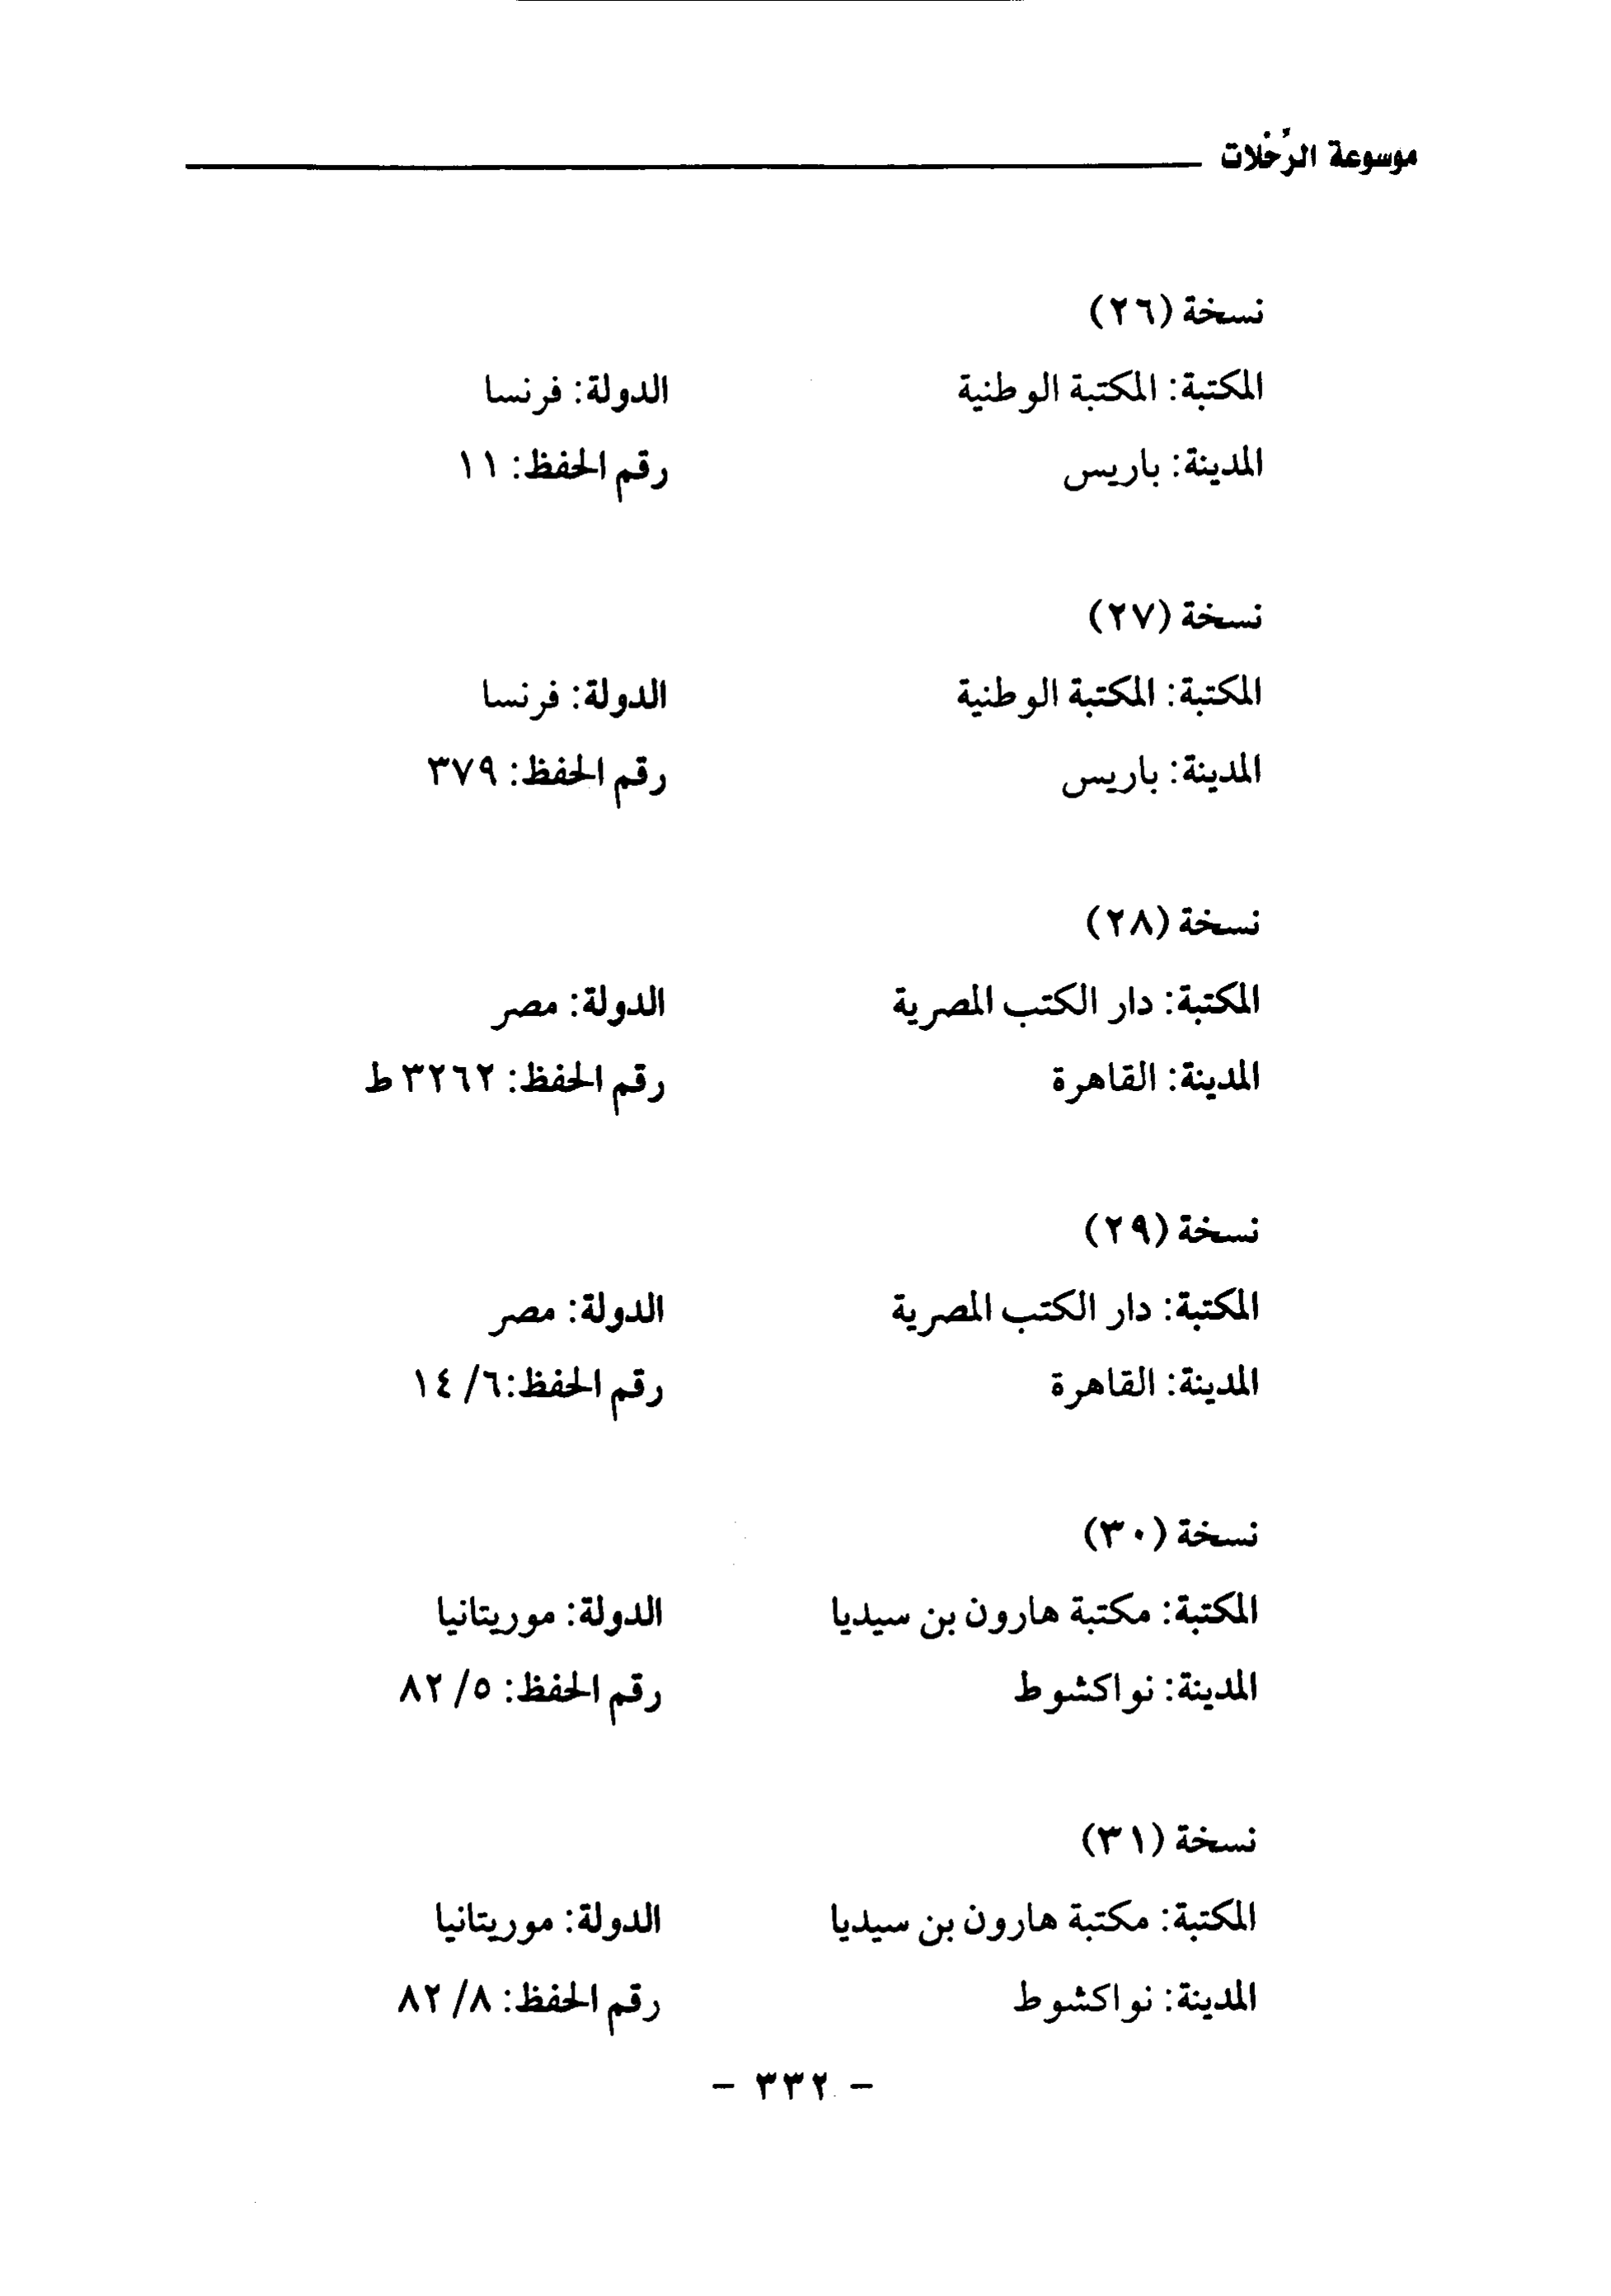 موسوعة الرِّحْلات
نسخة (٢٦)
المكتبة: المكتبة الوطنية الدولة: فرنسا
المدينة: باريس رقم الحفظ: ١١
نسخة (٢٧)
المكتبة: المكتبة الوطنية الدولة: فرنسا
المدينة: باريس رقم الحفظ: ٣٧٩
نسخة (٢٨)
المكتبة: دار الكتب المصرية الدولة: مصر
المدينة: القاهرة رقم الحفظ: ٣٢٦٢ ط
نسخة (٢٩)
المكتبة: دار الكتب المصرية الدولة: مصر
المدينة: القاهرة رقم الحفظ:٦/ ١٤
نسخة (٣٠)
المكتبة: مكتبة هارون بن سيديا الدولة: موريتانيا
المدينة: نواكشوط رقم الحفظ: ٥/ ٨٢
نسخة (٣١)
المكتبة: مكتبة هارون بن سيديا الدولة: موريتانيا
المدينة: نواكشوط رقم الحفظ: ٨/ ٨٢
- ٣٣٢ -